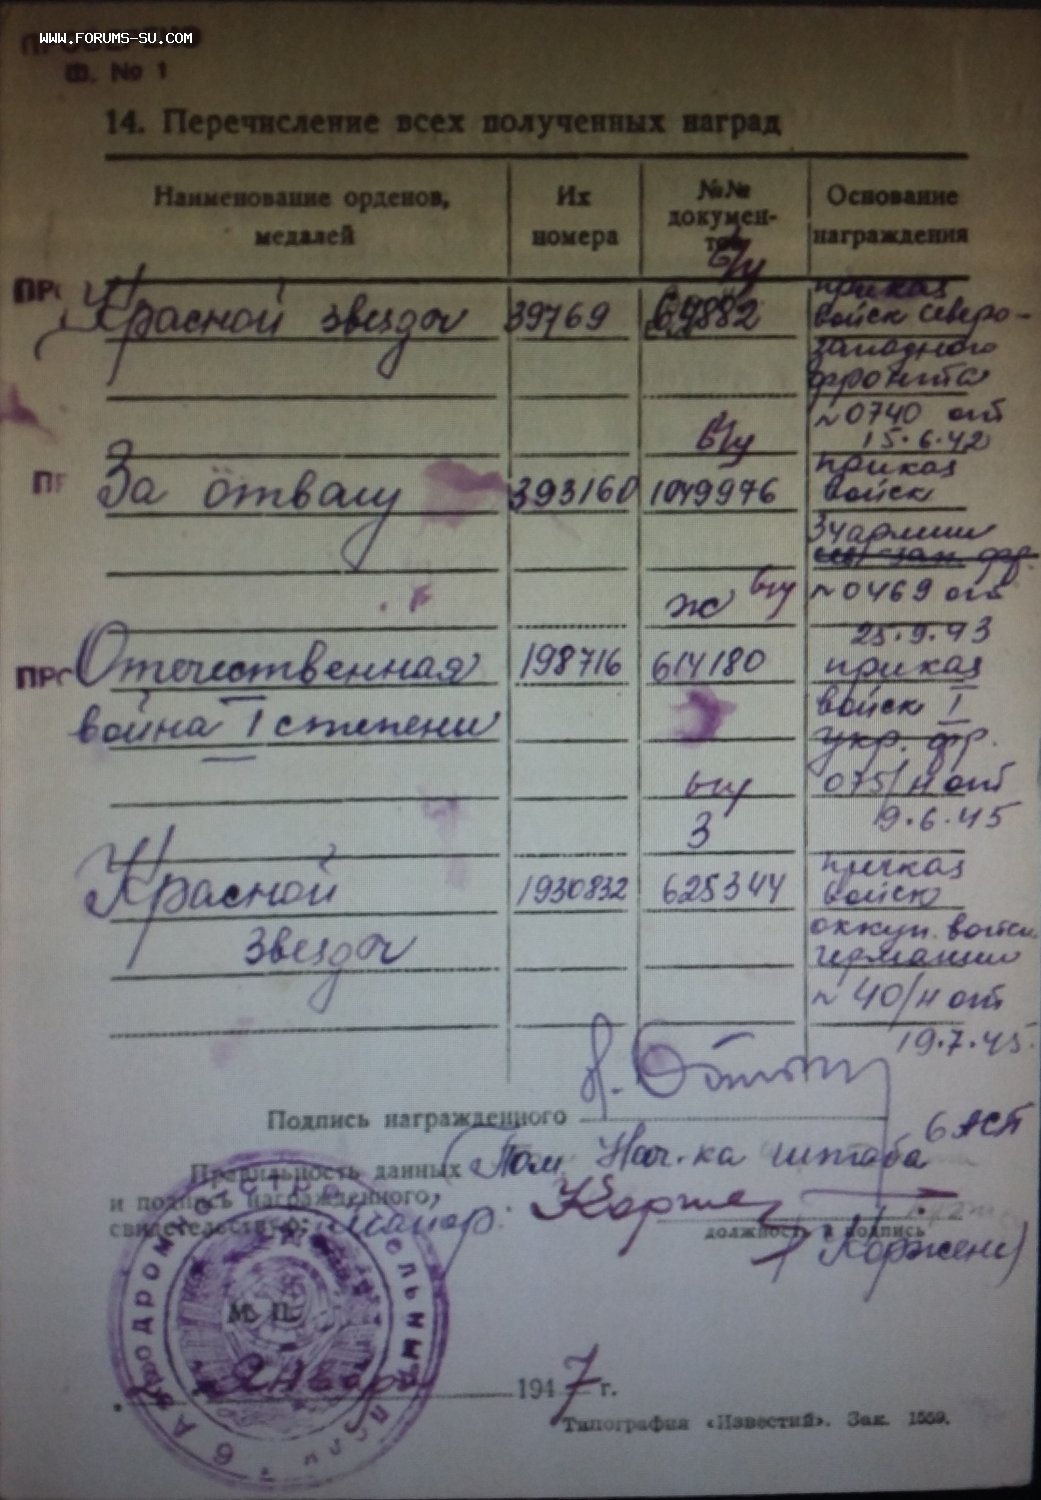 WWW.FORUMS-SU.COM
Ф. № 1
14. Перечисление всех полученных наград
Наименование орденов, медалей
Их номера
№№ докумен-
тов
Основание награждения
б/у
Красной звезды 39769 69882 приказ
войск северо-
западного
фронта
№0740 от
15.6.42
б/у
За отвагу 393160 1049976 приказ
войск
34 армии
№0469 от
25.9.43
ж б/у
Отечественная 198716 614180 приказ
война I степени войск I
укр. фр.
075/н от
9.6.45
б/у
З
Красной 1930832 625344 приказ
звезды войск
оккуп. войск
германии
№ 40/н от
19.7.45.
Подпись награжденного
Правильность данных Пом. Нач-ка штаба 6 АСП
и подпись награжденного,
свидетельствую: майор:
должность и подпись
М. П.
6 АЭРОДРОМНО
Января 1947 г.
Типография «Известий». Зак. 1559.